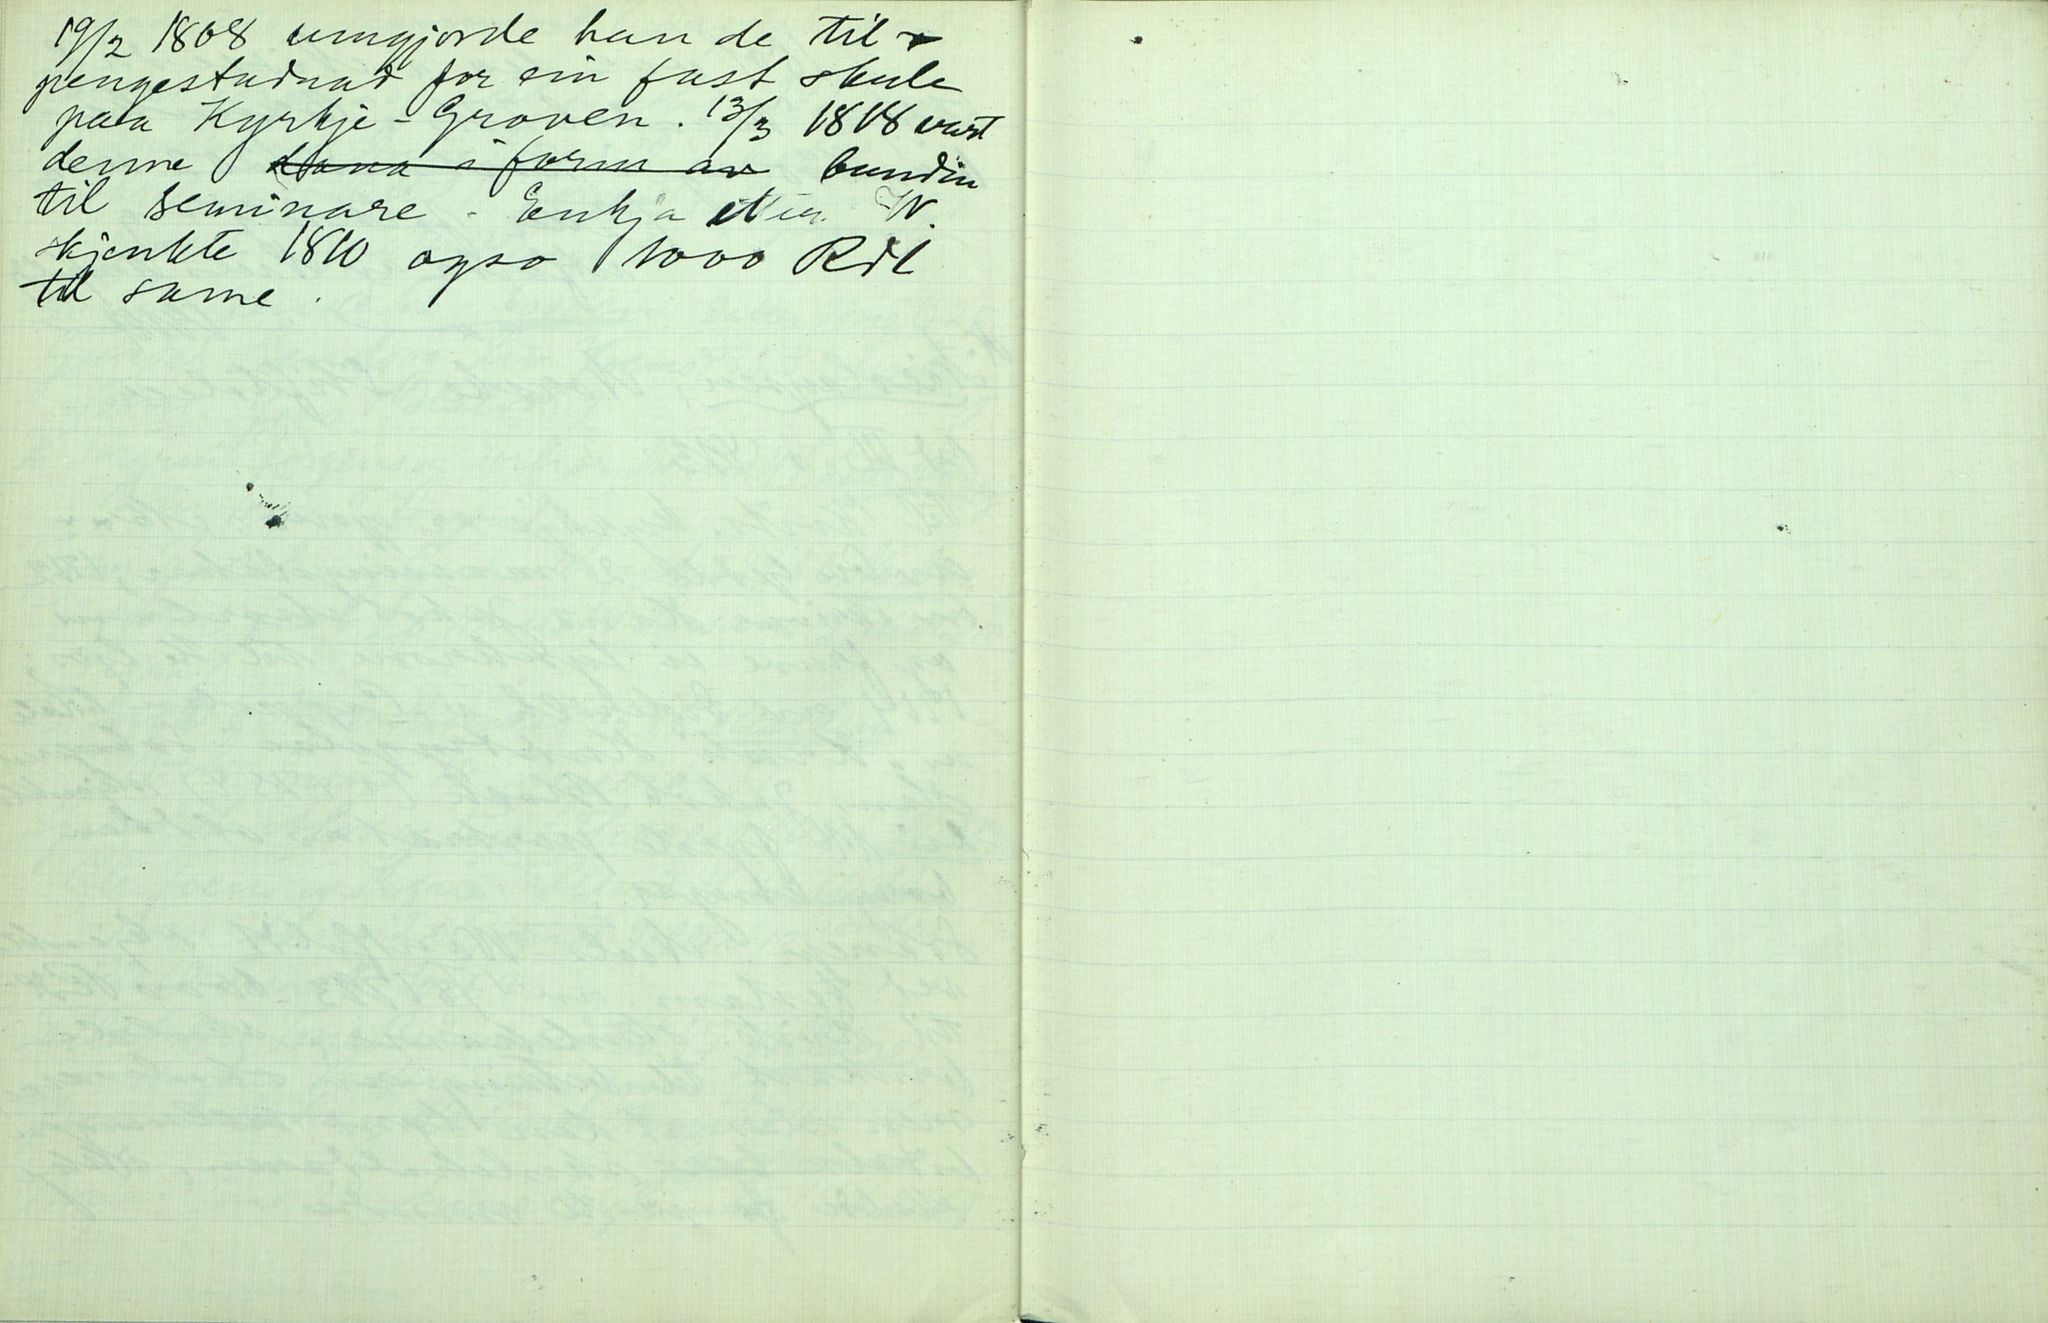 19/2 1808 umgjorde han de til
pengestudnad for ein fast skule
paa Kyrkje-Groven. 13/3 1818 vart
denne dana i form av bundin
til seminare - Enkja etter W.
skjenkte 1810 ogso 1000 Rdl
til same.